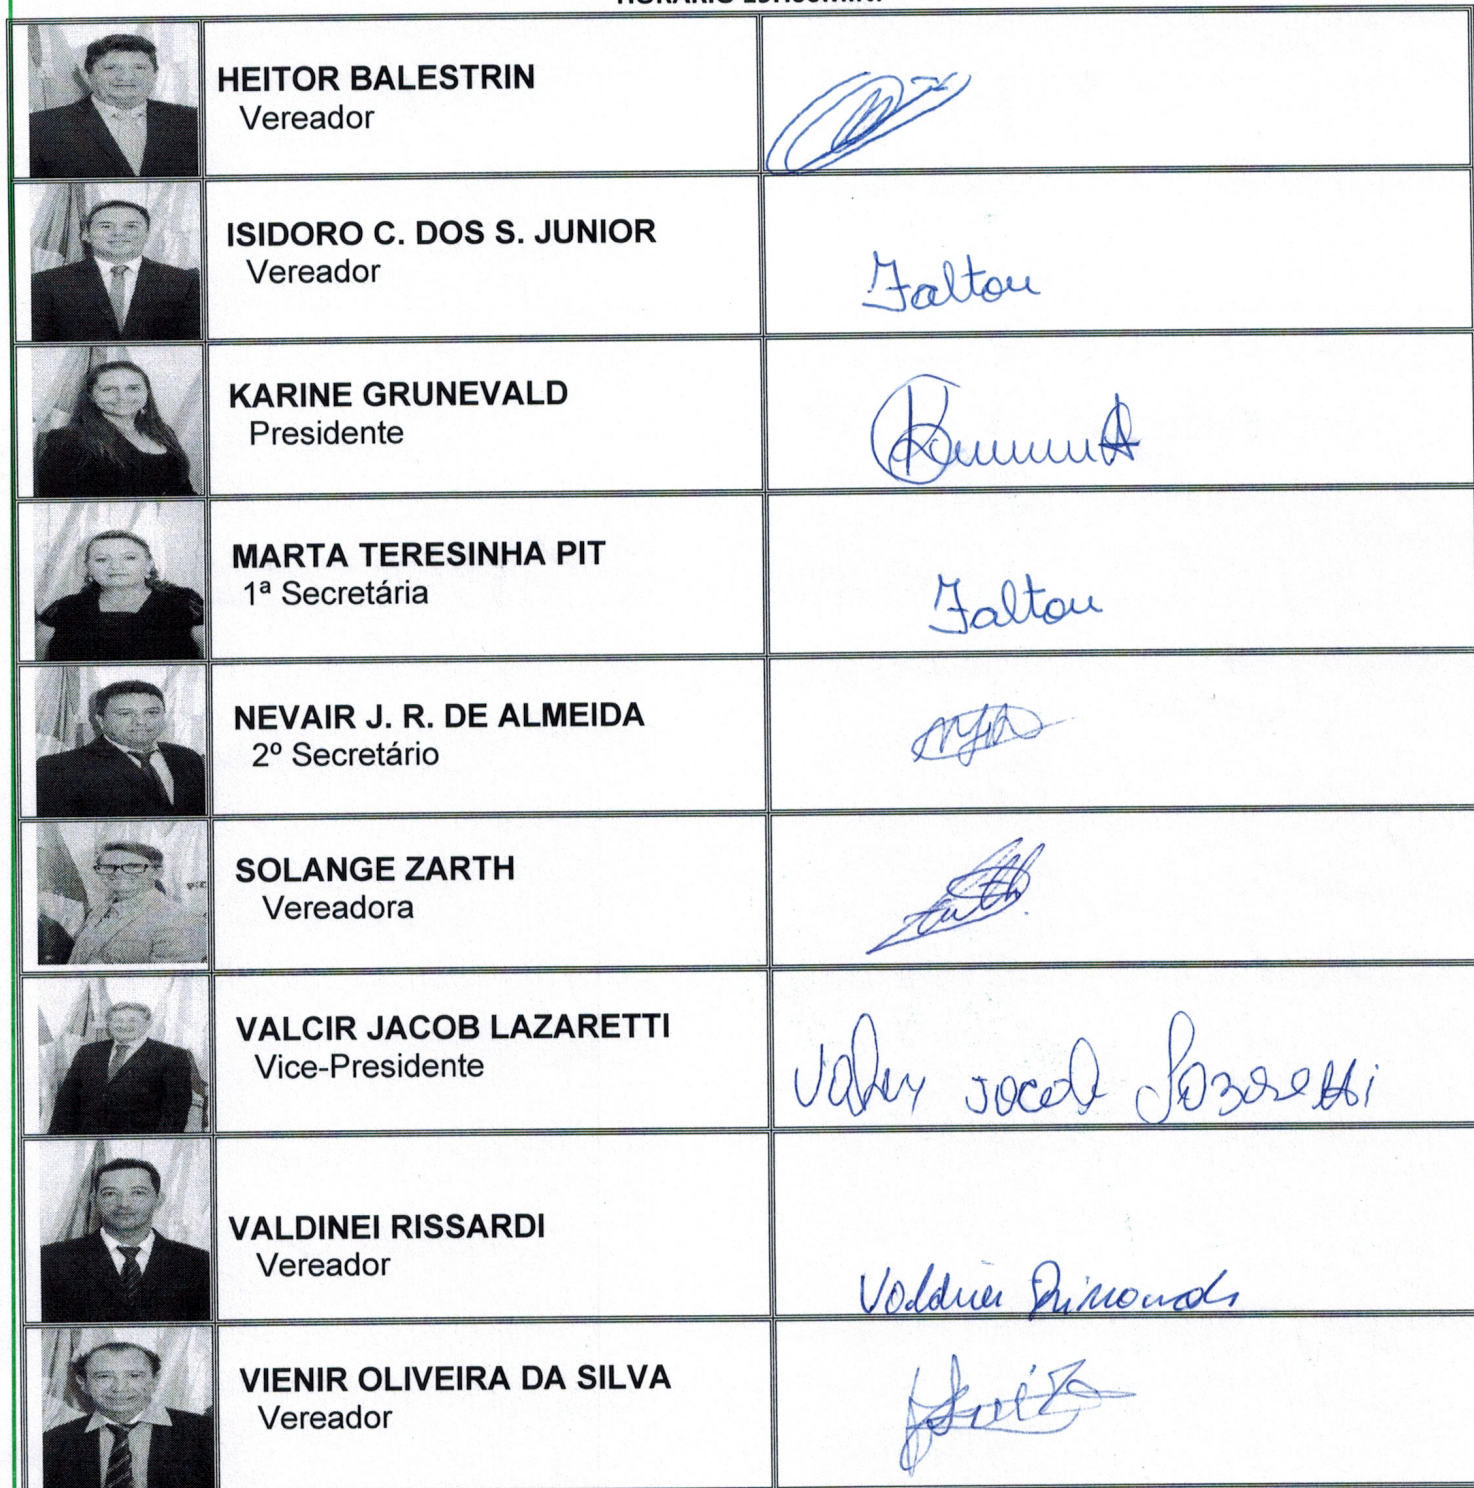 HEITOR BALESTRIN
Vereador
ISIDORO C. DOS S. JUNIOR
Vereador
Faltou
KARINE GRUNEVALD
Presidente
MARTA TERESINHA PIT
1ª Secretária
Faltou
NEVAIR J. R. DE ALMEIDA
2º Secretário
SOLANGE ZARTH
Vereadora
VALCIR JACOB LAZARETTI
Vice-Presidente
Valcir Jacob Lazaretti
VALDINEI RISSARDI
Vereador
Valdinei Rissardi
VIENIR OLIVEIRA DA SILVA
Vereador